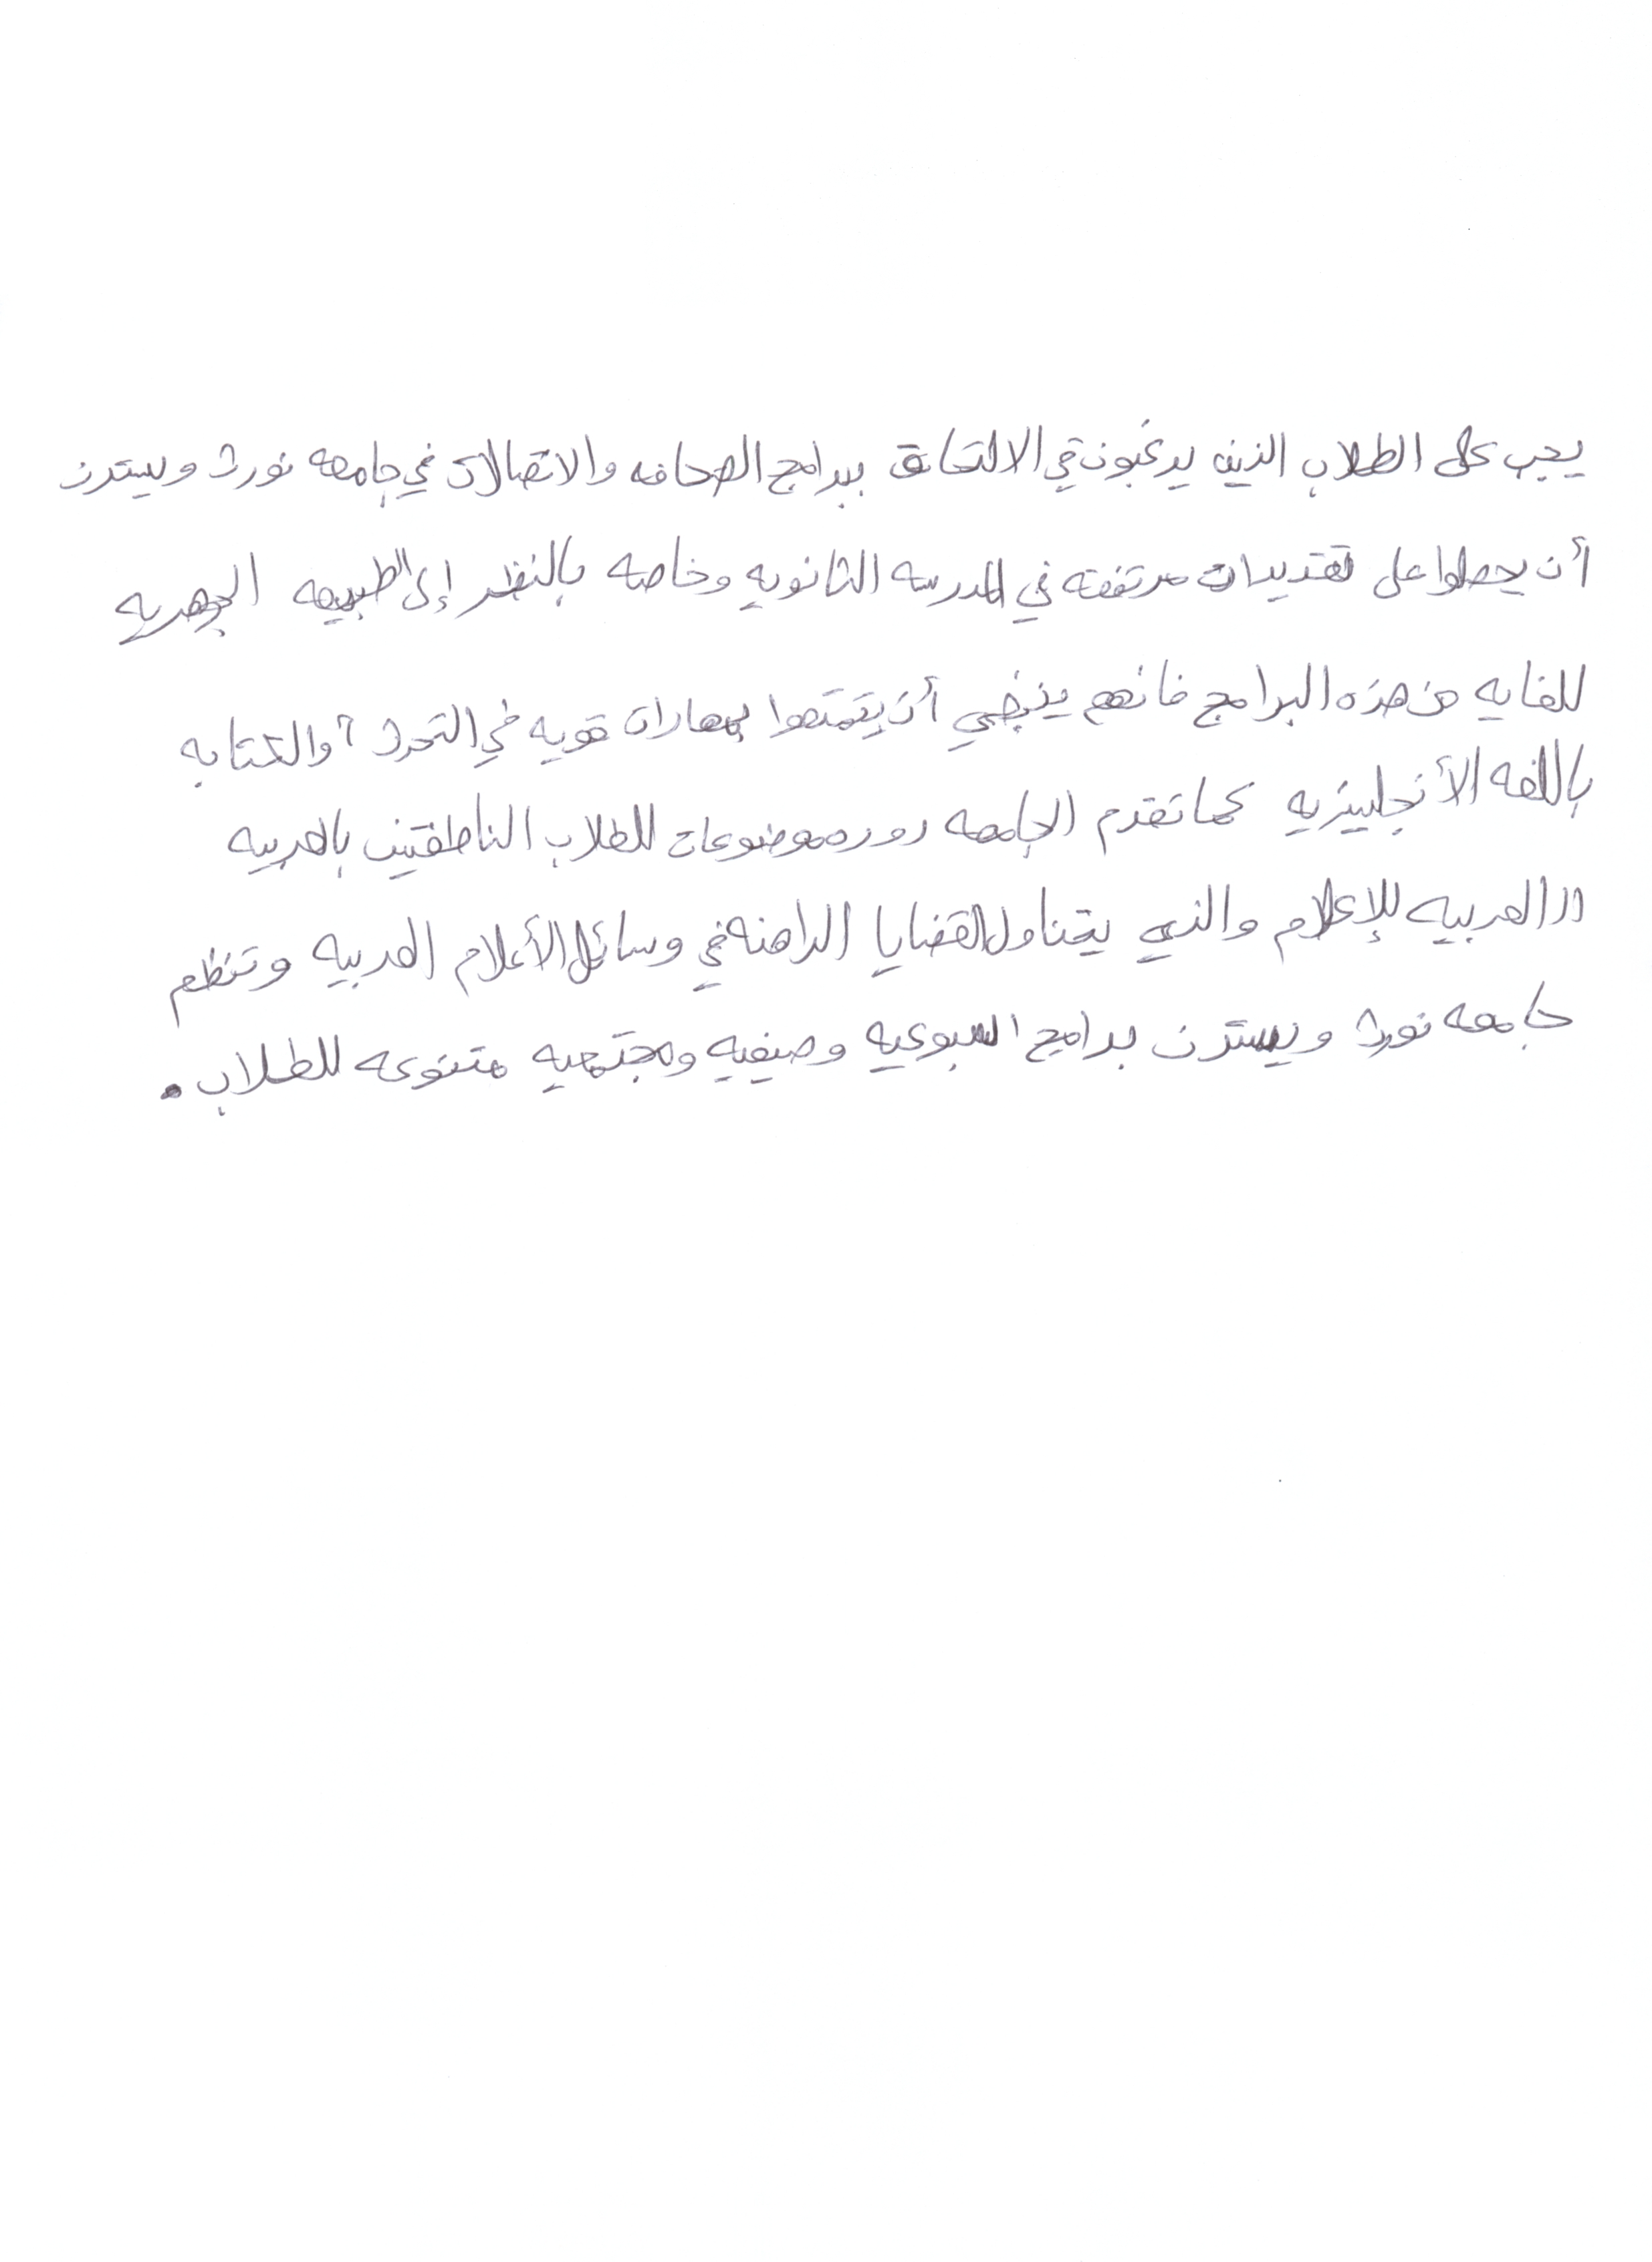 يجب على الطلاب الذين يرغبون في الالتحاق ببرامج الصحافه والاتصالات في جامعه نورث ويسترن
أن يحصلوا على تقديرات مرتفعه في المدرسه الثانويه وخاصه بالنظر إلى الطبيعه الجوهريه
للغايه من هذه البرامج فانهم ينبغي أن يتمتعوا بمهارات قويه في التحدث والكتابه
باللغه الأنجليزيه كما تقدم الجامعه دوره موضوعات للطلاب الناطقين بالعربيه
"العربيه للإعلام والذي يتناول القضايا الراهنه في وسائل الأعلام العربيه وتنظم
جامعه نورث ويسترن برامج اسبوعيه وصيفيه ومجتمعيه متنوعه للطلاب .